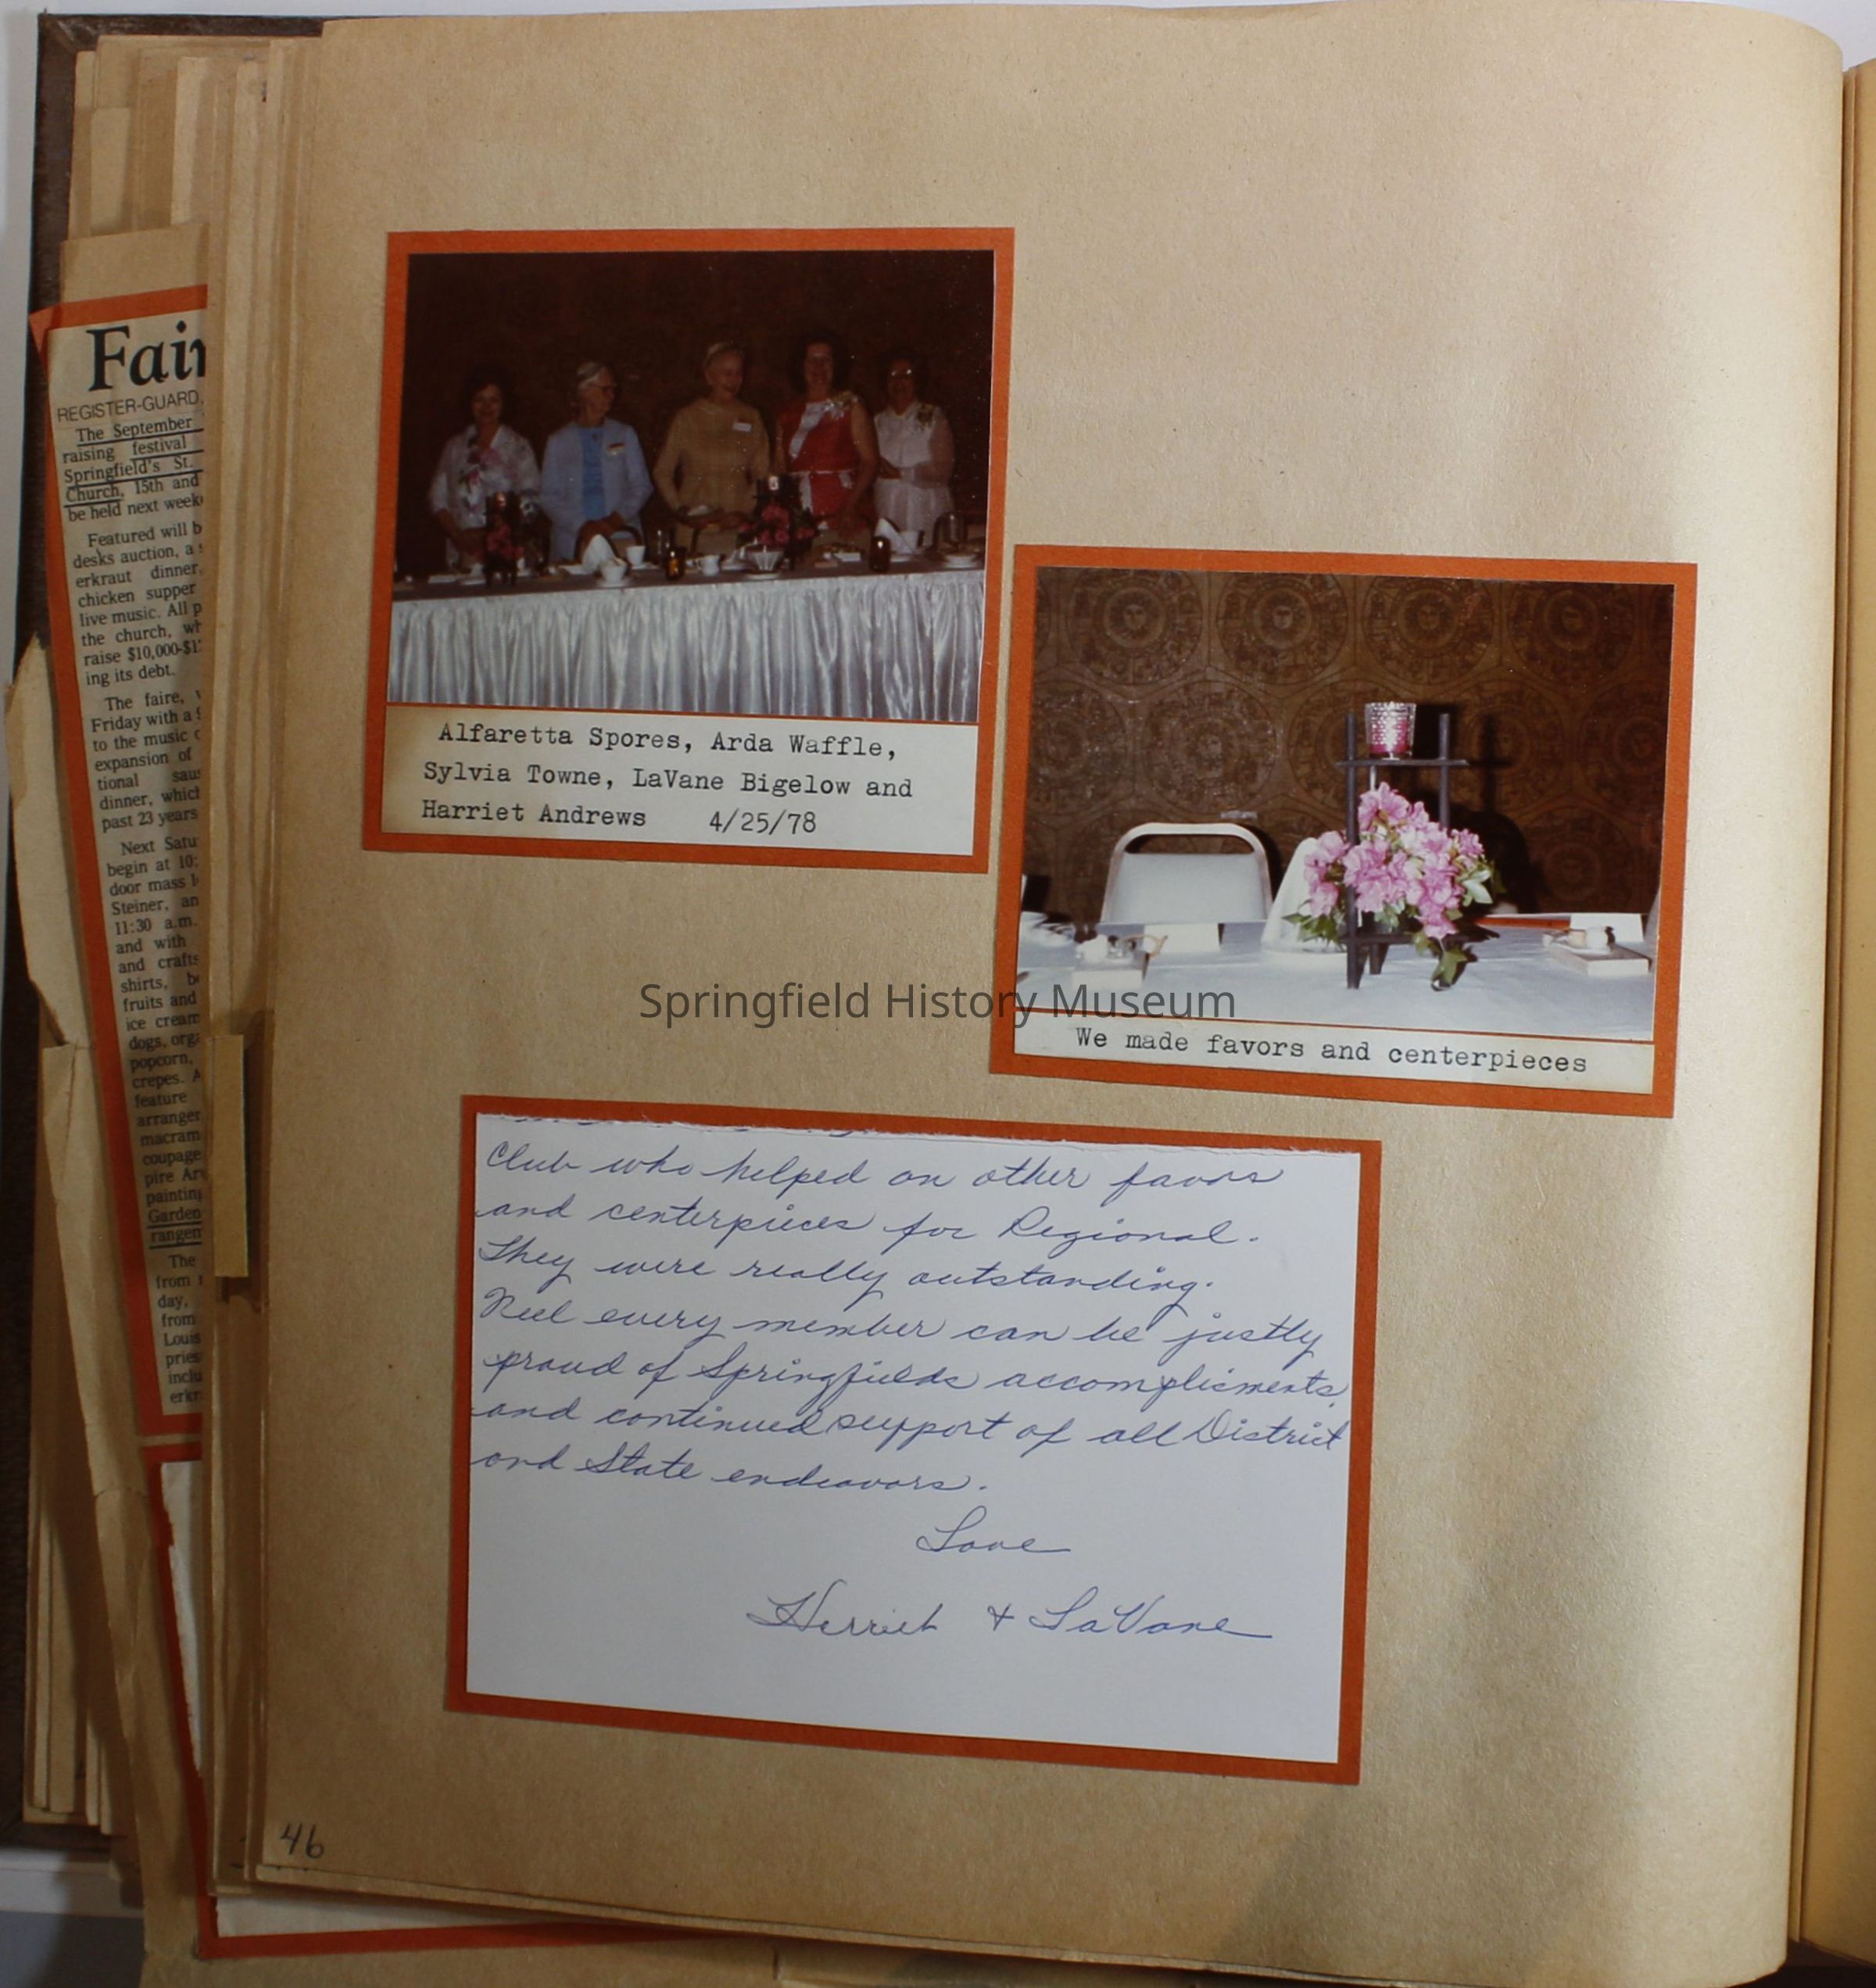 Fair
REGISTER-GUARD,
The September
raising festival
Springfield's St.
Church, 15th and
be held next week
Featured will b
desks auction, a s
erkraut dinner,
chicken supper
live music. All p
the church, wh
raise $10,000-$1
ing its debt.
The faire, w
Friday with a
to the music o
expansion of
tional saus
dinner, which
past 23 years
Next Satu
begin at 10:
door mass
Steiner, an
11:30 a.m.
and with
and crafts
shirts, b
fruits and
ice cream
dogs, orga
popcorn,
crepes. A
feature
arranger
macram
coupage
pire Ar
painting
Garden
rangem
The
from
day,
from
Louis
pries
inclu
erkr
Alfaretta Spores, Arda Waffle,
Sylvia Towne, LaVane Bigelow and
Harriet Andrews 4/25/78
Springfield History Museum
We made favors and centerpieces
Club who helped on other favors
and centerpieces for Regional.
They were really outstanding.
every member can be justly
proud of Springfields accomplisments,
and continued support of all District
and State endeavors.
Love
Harriet + LaVane
46